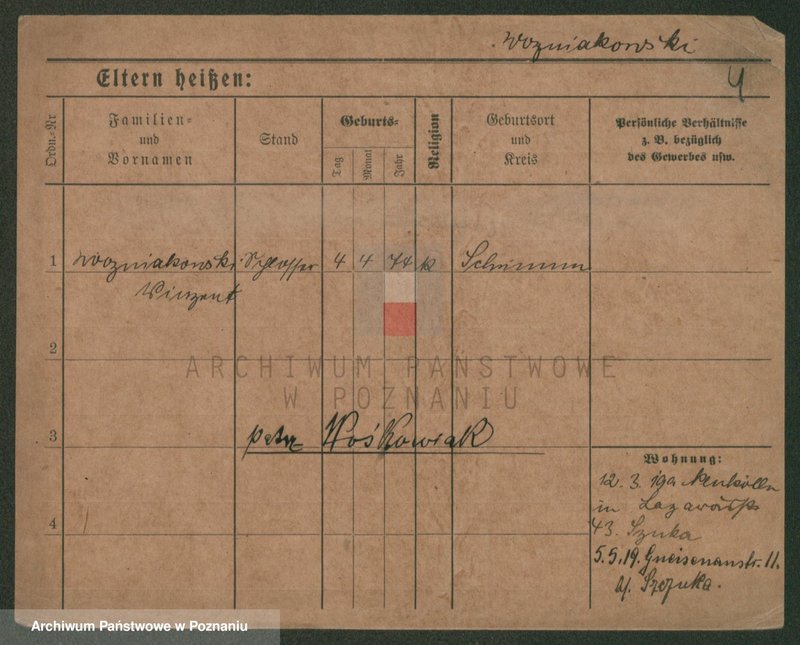 Wozniakowski
Eltern heißen:
Ordn.-Nr
Familien-
und
Vornamen
Stand
Geburts-
Tag
Monat
Jahr
Religion
Geburtsort
und
Kreis
Persönliche Verhältnisse
z. B. bezüglich
des Gewerbes usw.
1 Wozniakowski Schlosser 4 4 74 k Schrimm
Vinzent
2
ARCHIWUM PAŃSTWOWE
W POZNANIU
3
patrz Wośkowiak
Wohnung:
12. 3. Neukölln
in
43. Szuka
4
5.5.19. Gneisenaustr. 11.
b/. Szczuka.
Archiwum Państwowe w Poznaniu